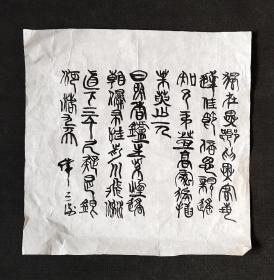 獨在異鄉為異客每
逢佳節倍思親遙
知兄弟登高處徧插
茱萸少一人
日照香鑪生紫煙遙
看瀑布挂前川飛流
直下三千尺疑是銀
河落九天